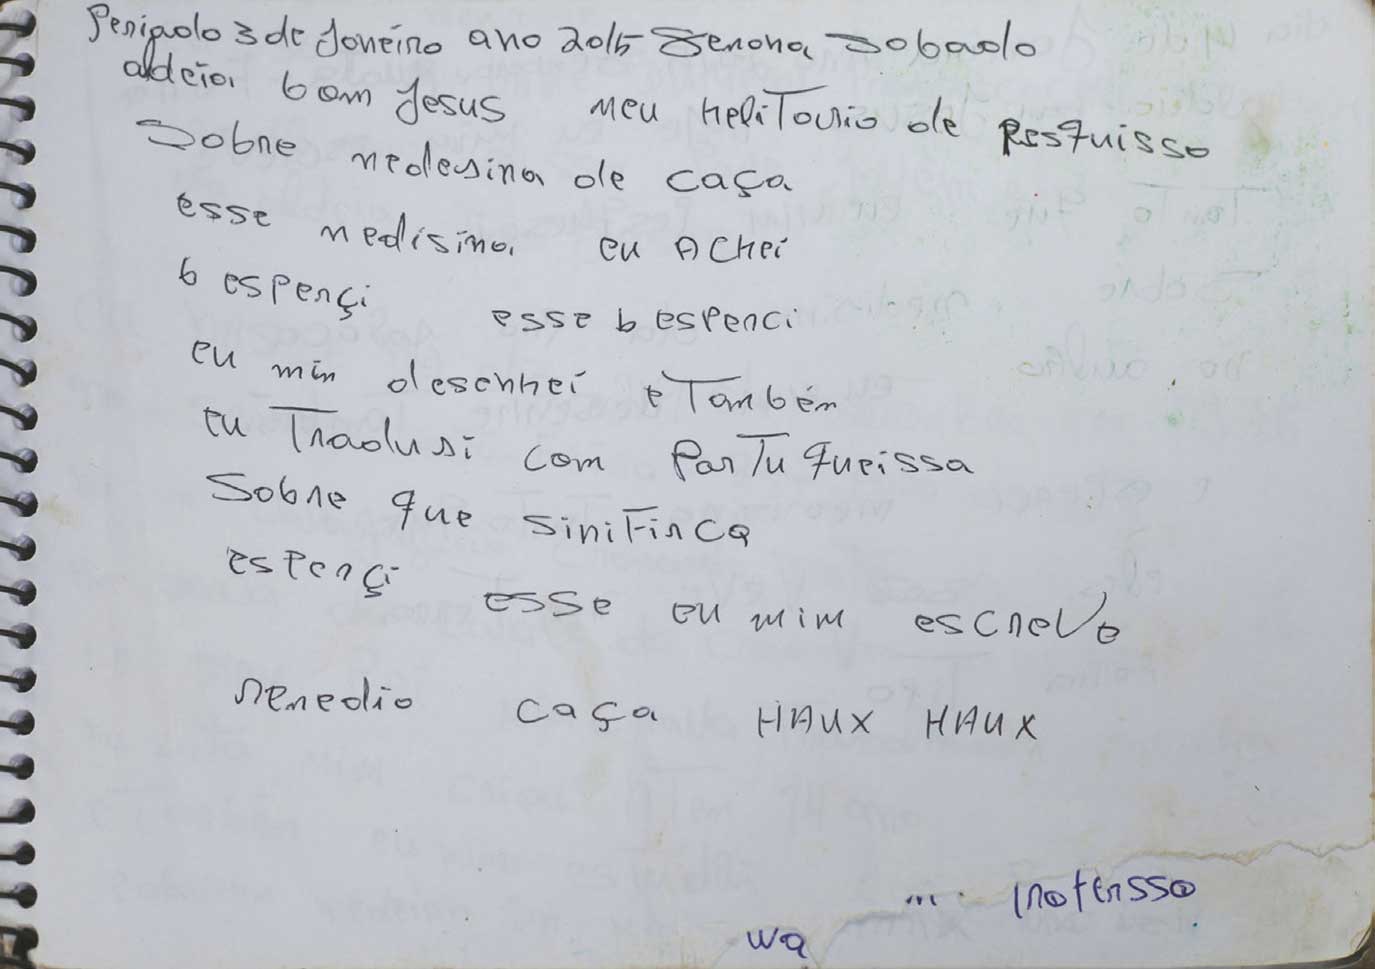 Periodo 3 de Joneiro ano 2015 Semona Sobado
aldeia bom Jesus meu heliTorio de Pesquisso
Sobre medesina de caça
esse medisina eu Achei
6 espençi esse 6 espenci
eu min desenhei e Também
eu Tradusi com PorTuqueissa
Sobre que siniFinca
espençi esse eu mim escreve
remedio caça HAUX HAUX
... Profensso
wa